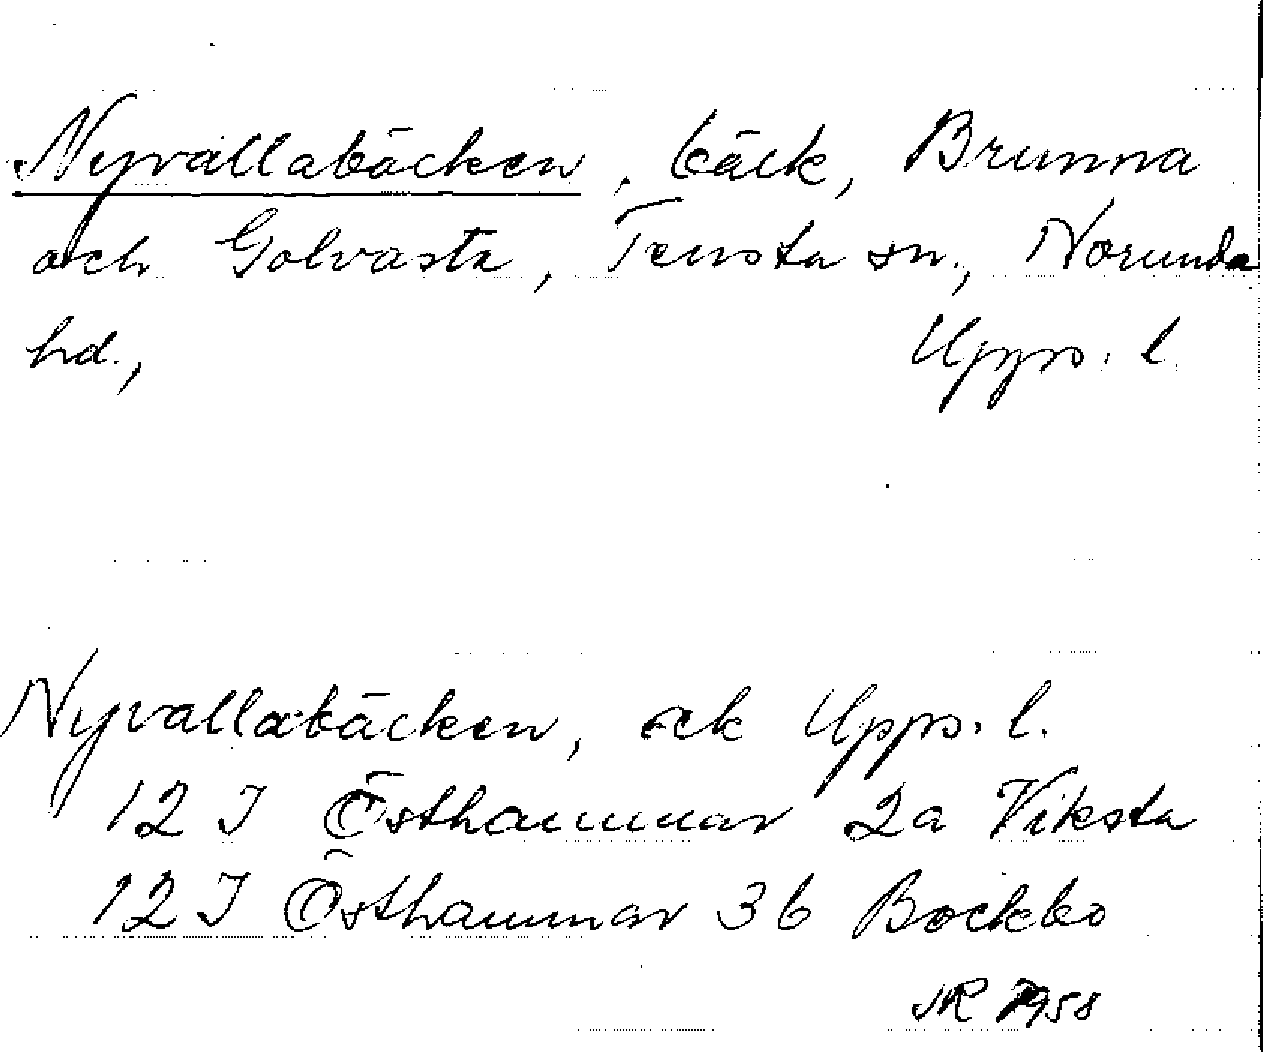 Nyvallabäcken, bäck, Brunna
och Golvasta, Tensta sn., Norunda
hd., Upps. l.
Nyvallabäcken, ek Upps. l.
12 I Östhammar 2a Viksta
12 I Östhammar 3b Bockbo
JR 1958